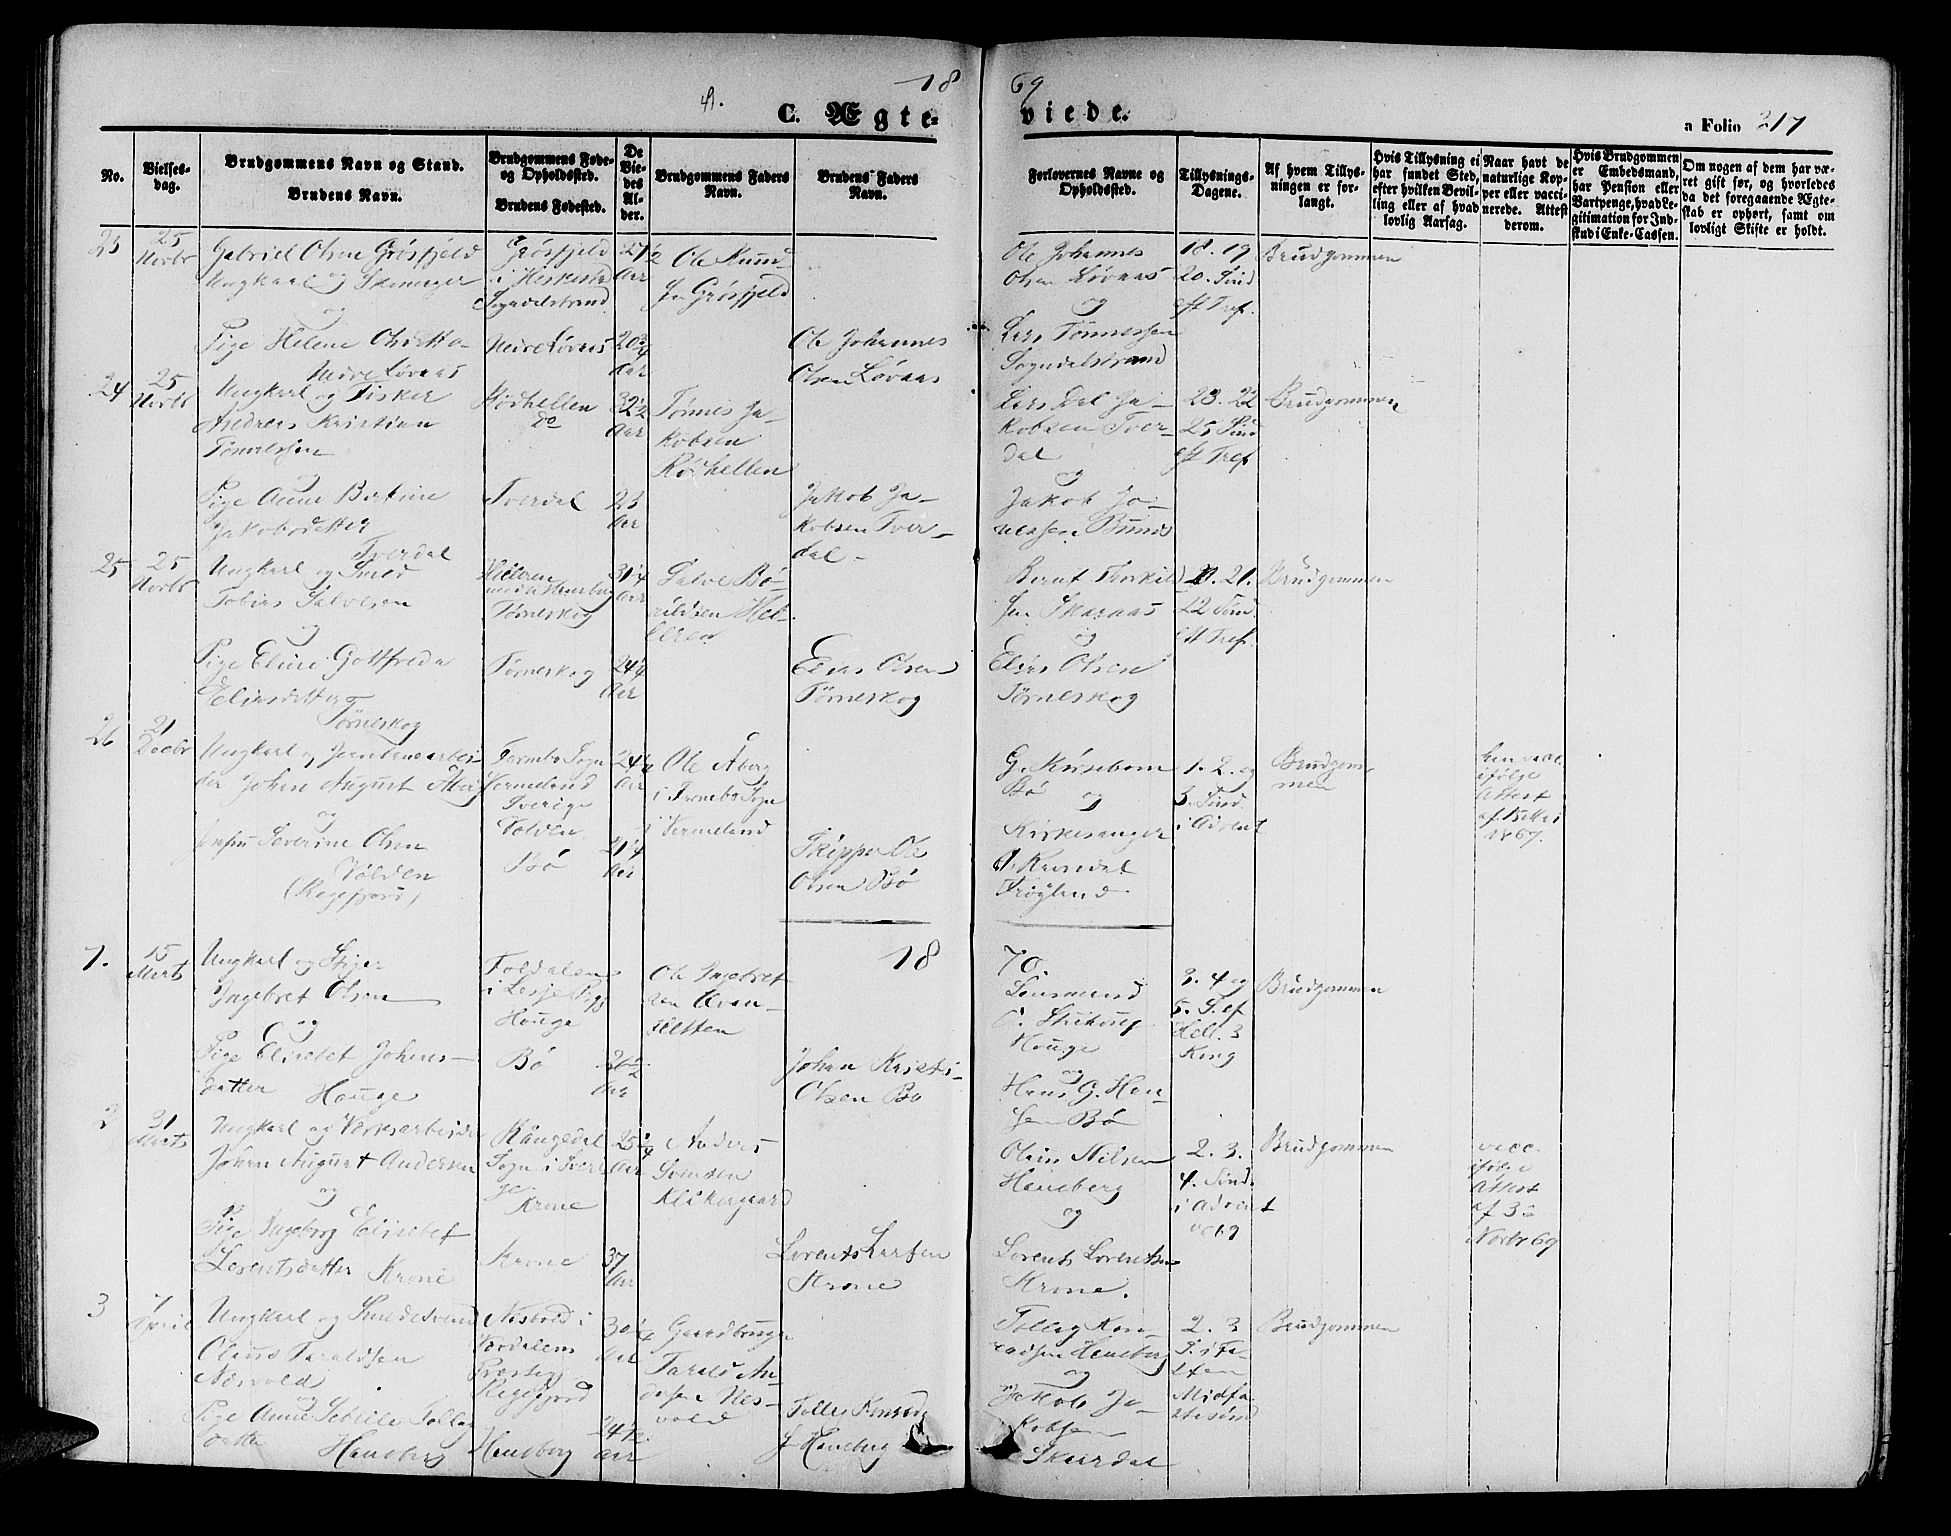 18 69
C. Ægte- viede.
a Folio 217
No.
Vielses-
dag.
Brudgommens Navn og Stand.
Brudens Navn.
Brudgommens Føde-
og Opholdssted.
Brudens Fødested.
De
Vie-
des
Al-
der.
Brudgommens Faders
Navn.
Brudens Faders
Navn.
Forlovernes Navne og
Opholdssted.
Tillysnings-
Dagene.
Af hvem Tillys-
ningen er for-
langt.
Hvis Tillysning ei
har fundet Sted,
efter hvilken Bevil-
ling eller af hvad
lovlig Aarsag.
Naar havt de
naturlige Kop-
per eller vacci-
nerede. Attest
derom.
Hvis Brudgommen
er Embedsmand,
har Pension eller
Vartpenge, hvad Le-
gitimation for Ind-
skud i Enke-Cassen.
Om nogen af dem har væ-
ret gift før, og hvorledes
da det foregaaende Ægte-
skab er ophørt, samt om
lovligt Skifte er holdt.
23
25
Novbr
Gabriel Olsen Grøsfjeld
Ungkarl og
og
Pige Helene Olsdatter
Nedre Løvaas
Grøsfjeld
i Heskestad
Sogndalstrand
Nedre Løvaas
27 1/2
Aar
20 3/4
Aar
Ole Knud-
sen Grøsfjeld
Ole Johannes
Olsen Løvaas
Ole Johannes
Olsen Løvaas
og
Lars Tønnessen
Sogndalstrand
18. 19
20. Sønd
eft Tref.
Brudgommen
24
25
Novbr
Ungkarl og Fisker
Andreas Kristian
Tønnessen
og
Pige Anne Bertine
Jakobsdatter
Tverdal
Rødhellen
do
Tverdal
32 1/2
Aar
23
Aar
Tønnes Ja-
kobsen
Rødhellen
Jakob Ja-
kobsen Tver-
dal-
Lars Dal Ja-
kobsen Tver-
dal
og
Jakob Jo-
nassen
23. 22
25 Sønd
eft Tref
Brudgommen
25
25
Novbr
Ungkarl og Smed
Tobias Salvesen
og
Pige Eline Gottfreda
Eliasdatter
Tørneskog
Helleren
Tørneskog
Tørneskog
31 1/4
Aar
24 1/4
Aar
Salve Bø-
rildsen Hel-
leren
Elias Olsen
Tørneskog
Bernt Thorkild
sen Skaraas
og
Elias Olsen
Tørneskog
21.
22 Sønd
eft Tref.
Brudgommen
26
21
Decbr
Ungkarl og Jernbanearbei-
der Johan August Åberg
og
Jomfru Severine Olsen
Volden
(Regefjord)
Sogn
Vermeland
Sverige
Volden
Bø
24 1/2
Aar
21 1/4
Aar
Ole Åberg
i Sogn
i Vermeland
Skipper Ole
Olsen Bø
G. Kirsebom
Bø
og
Kirkesanger
Frøyland
1. 2. og
3. Sønd.
i Advent
Brudgom-
men
han vacc.
ifølge
Attest
af
1867.
18 70.
1.
15
Marts
Ungkarl og
Ingebret Olsen
og
Pige Elisabet Johnes-
datter Houge
Foldalen
i Lesje Pgjd
Houge
Bø
26 1/2
Aar
Ole Ingebret
sen
Johan Kristi-
Olsen Bø
Lensmand
Houge
og
Hans G. Han-
sen Bø
3. 4 og
5. S. ef
Hell. 3
Kong
Brudgommen
2
31
Marts
Ungkarl og Værksarbeider
Johan August Andersen
og
Pige Ingeborg Elisabet
Lorentsdatter Krone
Sogn i Sveri
ge
Krone
Krone
25 1/4
Aar
37
Aar
Anders
Svensen
Lorents Larsen
Krone
Olaus Nilsen
Haneberg
og
Lorents Lorentsen
Krone.
2. 3.
4. Sønd.
i Advent
1869
Brudgommen
vacc.
ifølge
Attest
af 3die
Novbr 69
3
7
April
Ungkarl og Smedesvend
Olaus Taraldsen
Næsvold
og
Pige Anne Tollag
datter Haneberg
Næsvold i
Værdalens
Præstegj
Regefjord
Haneberg
30 1/4
Aar
24 1/2
Aar
Gaardbruger
Tarald An-
dersen Næs-
vold
Tollag Konrad
s Haneberg
Tollag Kon-
radsen Haneberg
og
Jakob Ja-
kobsen
Skurdal
2. 3
S. i Fa-
sten
Midfa-
stesønd
Brudgommen